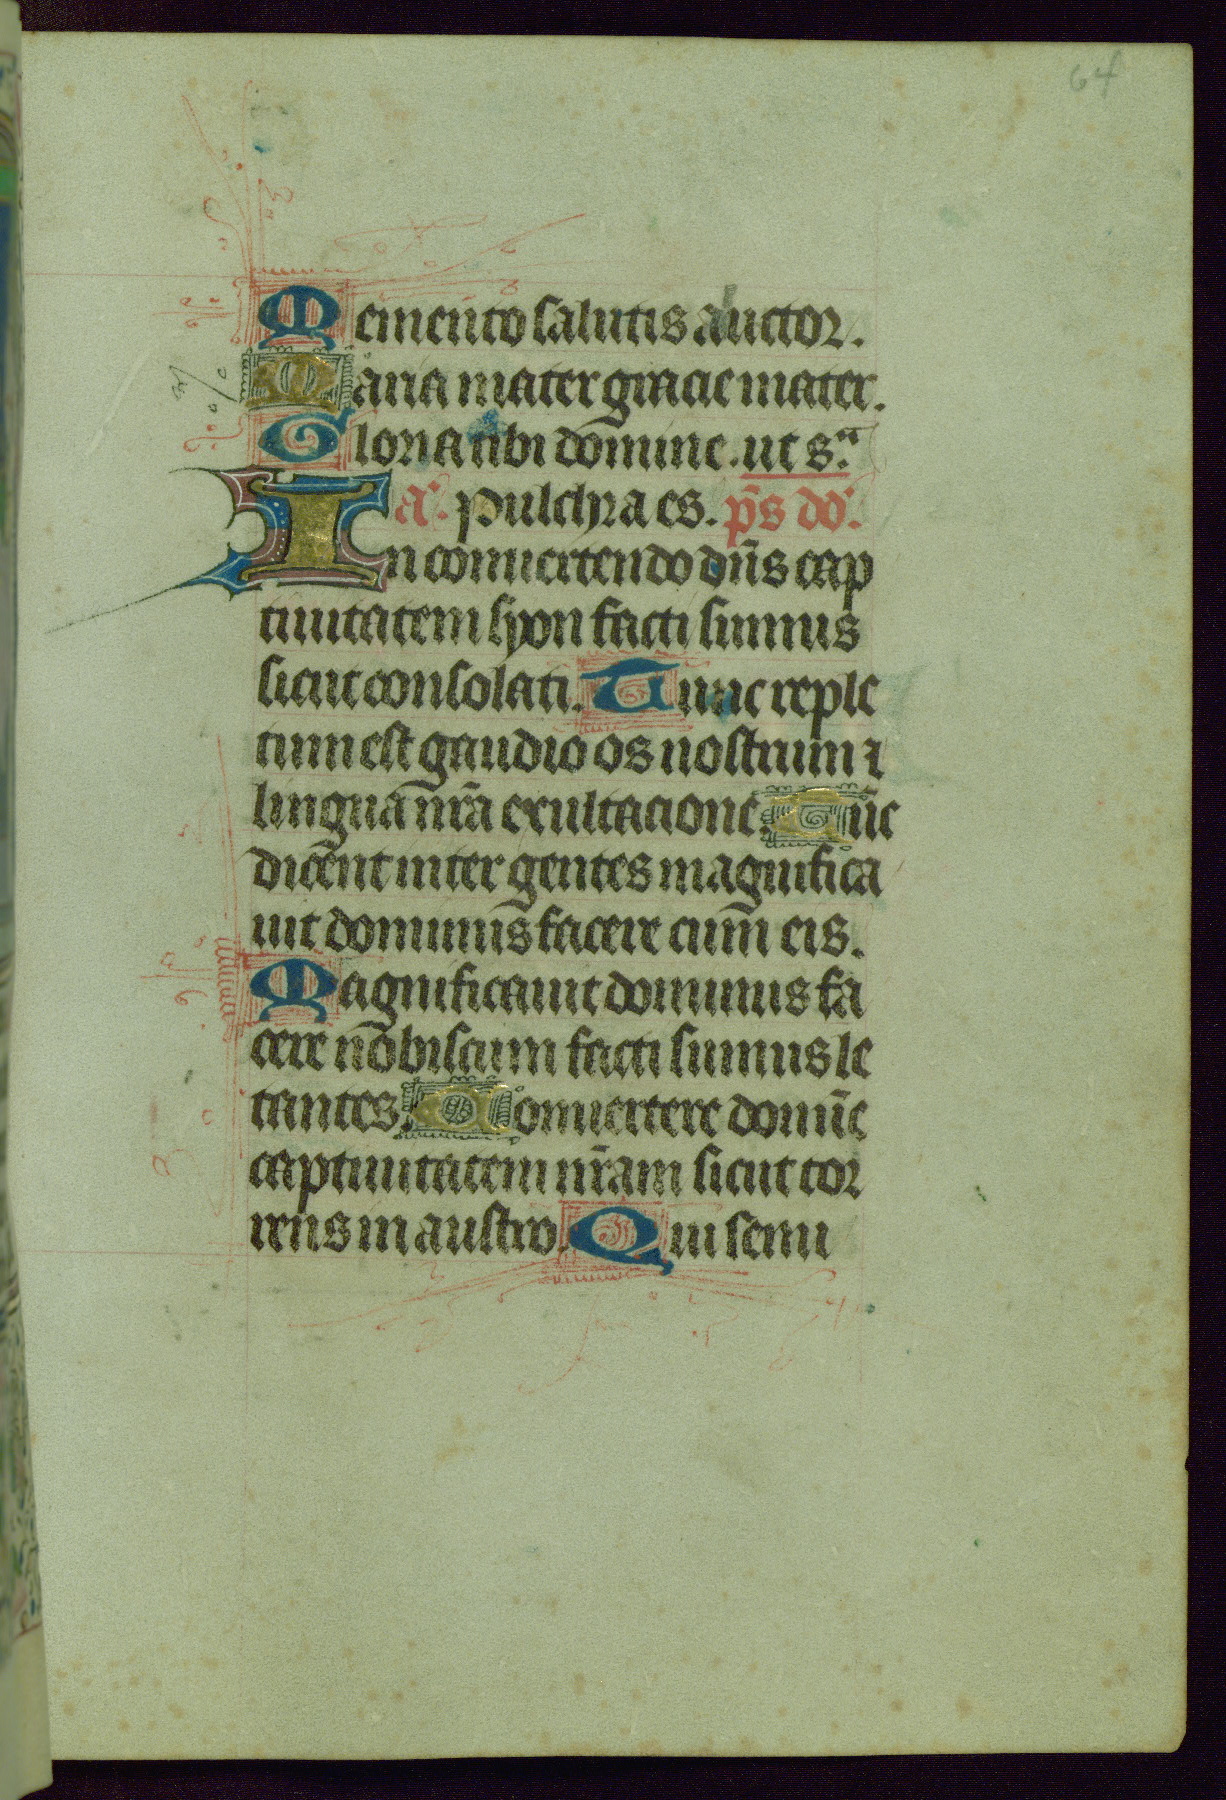 64
Memento salutis auctor.
Maria mater gracie mater.
Gloria tibi domine. ut s.a
a. Pulchra es. p̄s dō.
In conuertendo dn̄s cap
tiuitatem syon facti sumus
sicut consolati. Tunc reple
tum est gaudio os nostrum ⁊
lingua nr̄a exultacione. Tūc
dicent inter gentes magnifica
uit dominus facere cum eis.
Magnificauit dominus fa
cere nobiscum facti sumus le
tantes. Conuertere domīe
captiuitatem nr̄am sicut tor
rens in austro. Qui semi